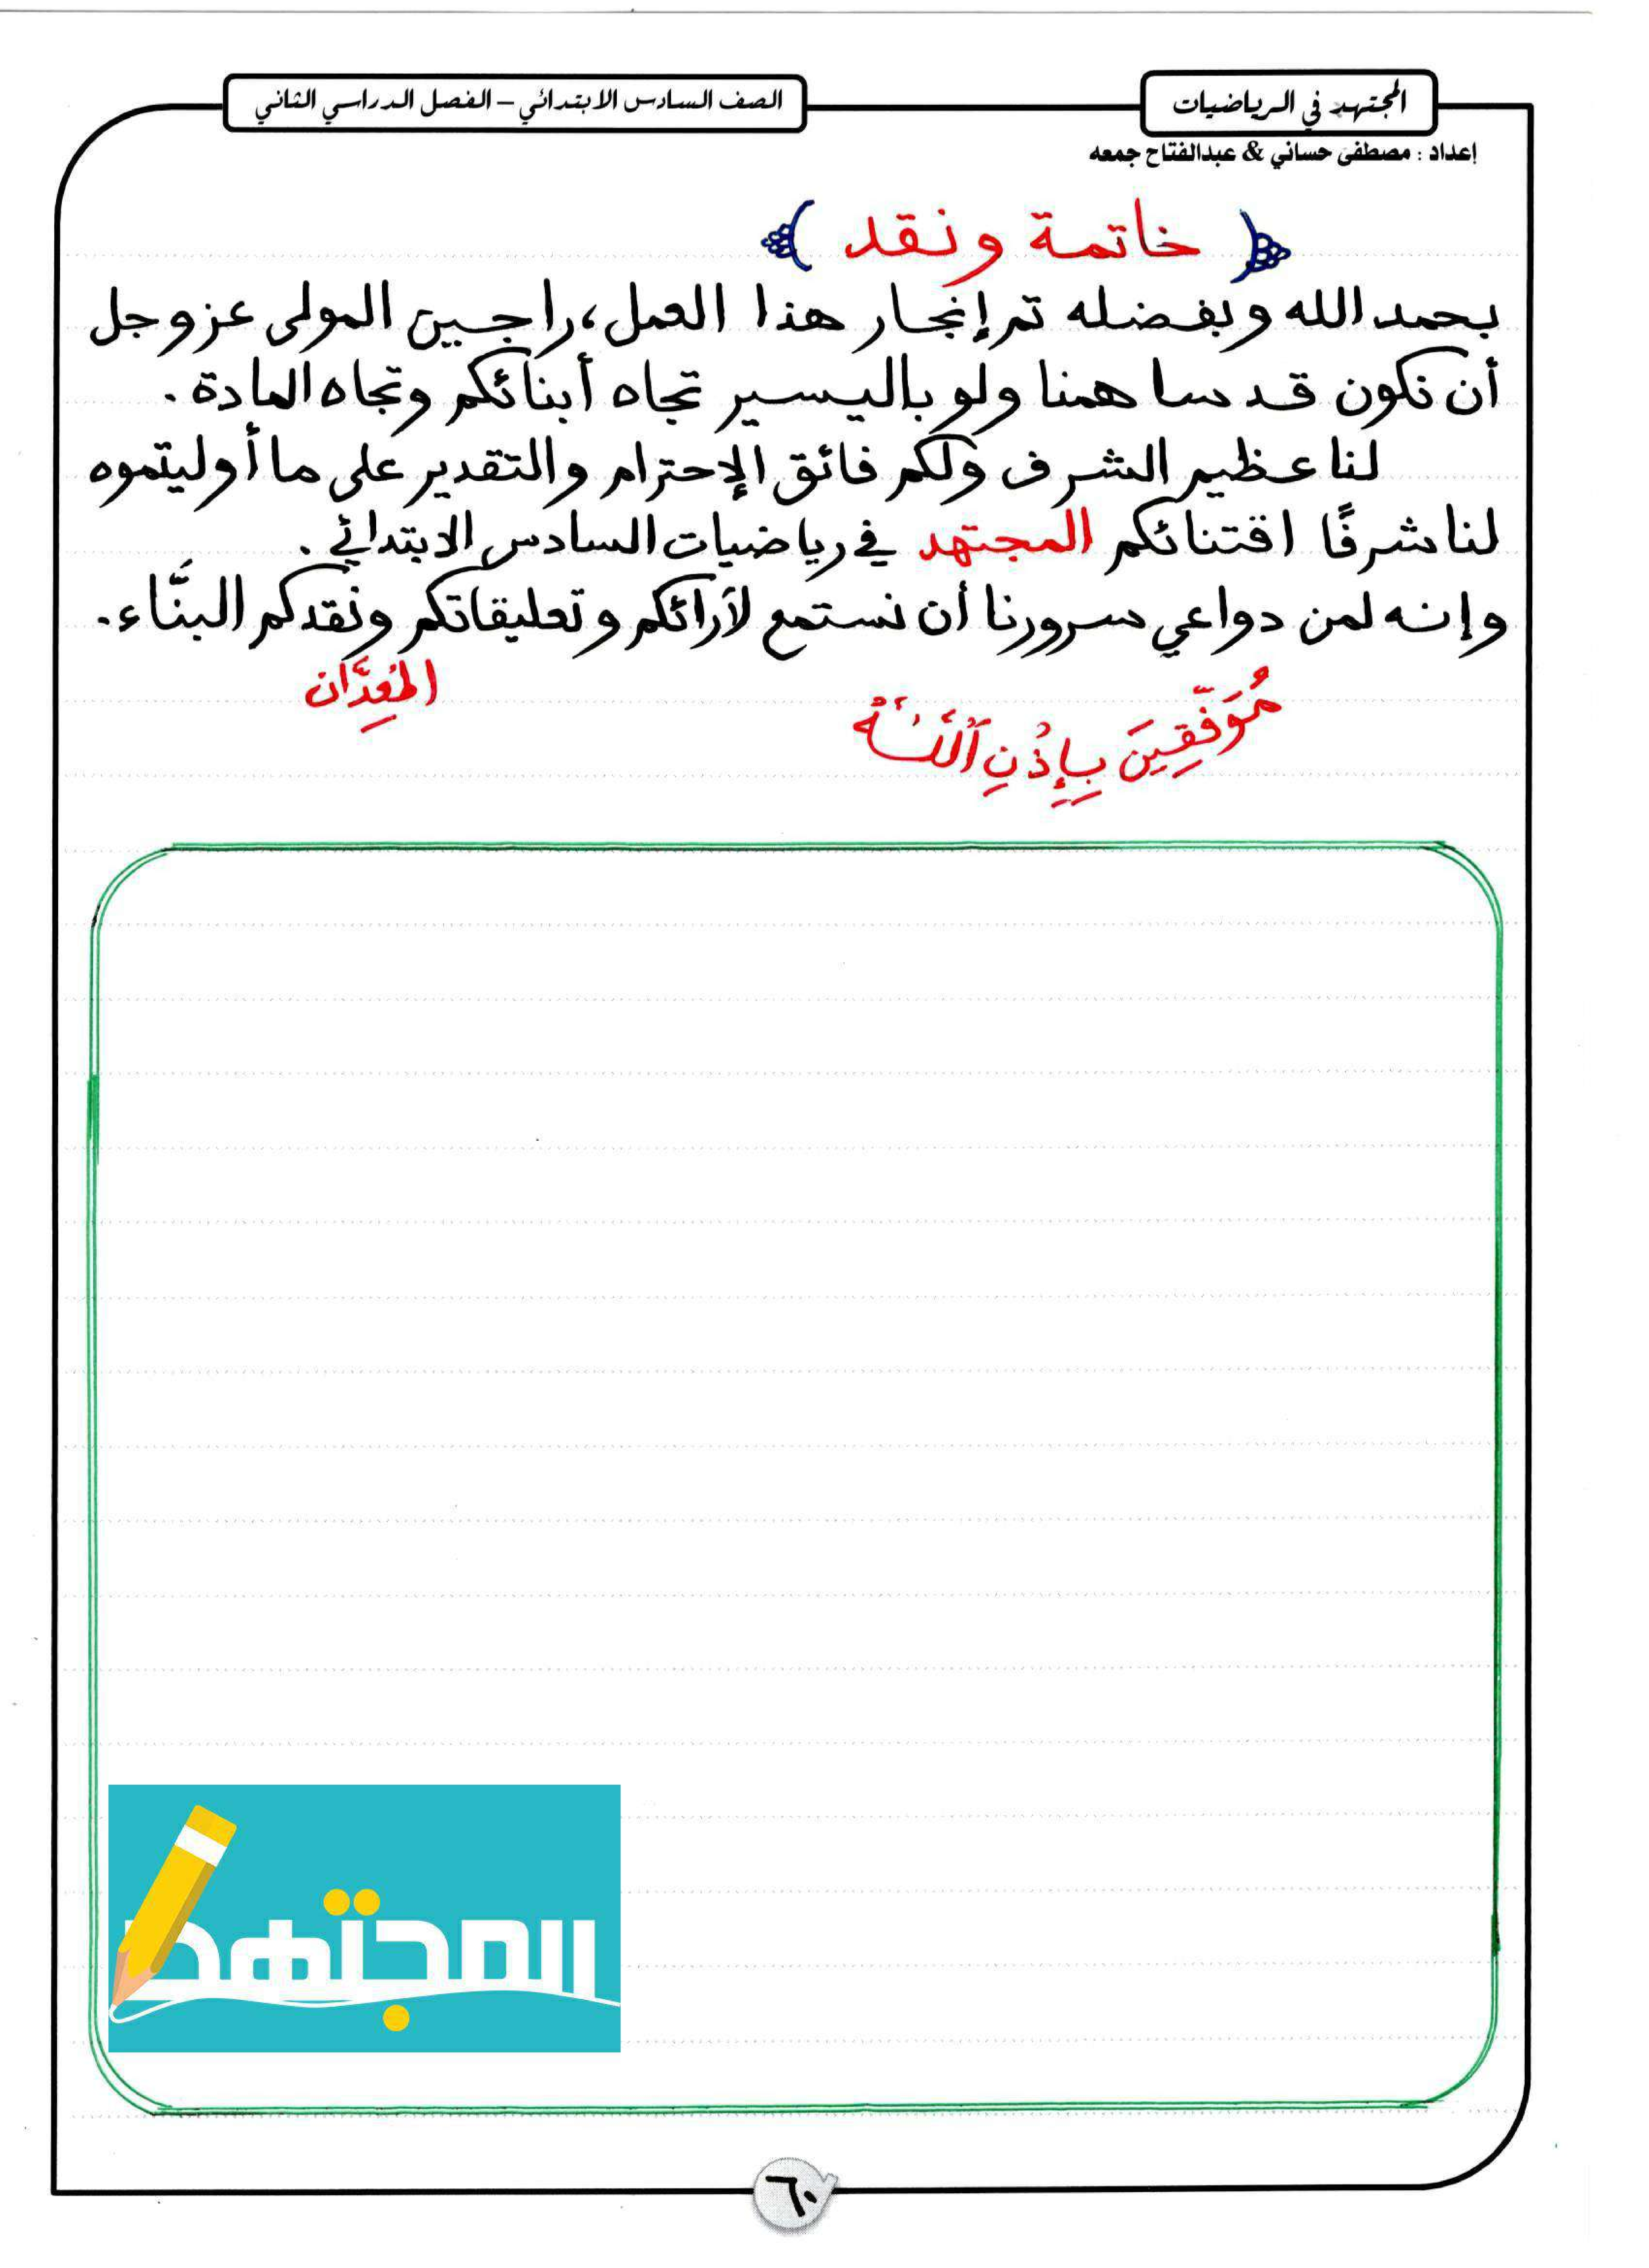 المجتهد في الرياضيات
الصف السادس الابتدائي – الفصل الدراسي الثاني
إعداد : مصطفى حساني & عبدالفتاح جمعه
﴿ خاتمة ونقد ﴾
بحمد الله وبفضله تم إنجاز هذا العمل، راجين المولى عز وجل
أن نكون قد ساهمنا ولو باليسير تجاه أبنائكم وتجاه المادة .
لنا عظيم الشرف ولكم فائق الإحترام والتقدير على ما أوليتموه
لنا شرفًا اقتنائكم المجتهد في رياضيات السادس الابتدائي .
وإنه لمن دواعي سرورنا أن نستمع لآرائكم وتعليقاتكم ونقدكم البنَّاء .
المُعِدَّان
مُوَفَّقِينَ بِإِذْنِ ٱللَّهِ
المجتهد
٦٠